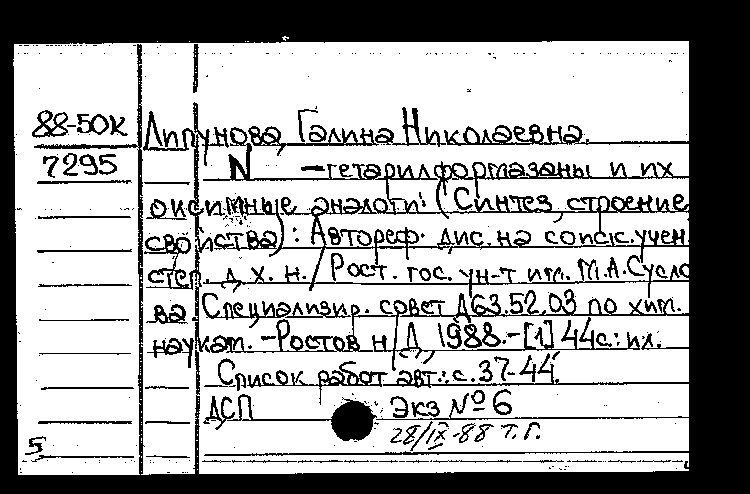 88-50К Липунова, Галина Николаевна.
7295 N -гетарилформазаны и их
оксимные аналоги: (Синтез, строение,
свойства): Автореф. дис. на соиск. учен.
степ. д. х. н. / Рост. гос. ун-т им. М.А. Сусло
ва. Специализир. совет Д 63.52.03 по хим.
наукам. -Ростов н/Д, 1988.-[1] 44с.: ил.
Список работ авт.: с. 37-44.
ДСП Экз № 6
28/IX-88 т. г.
5